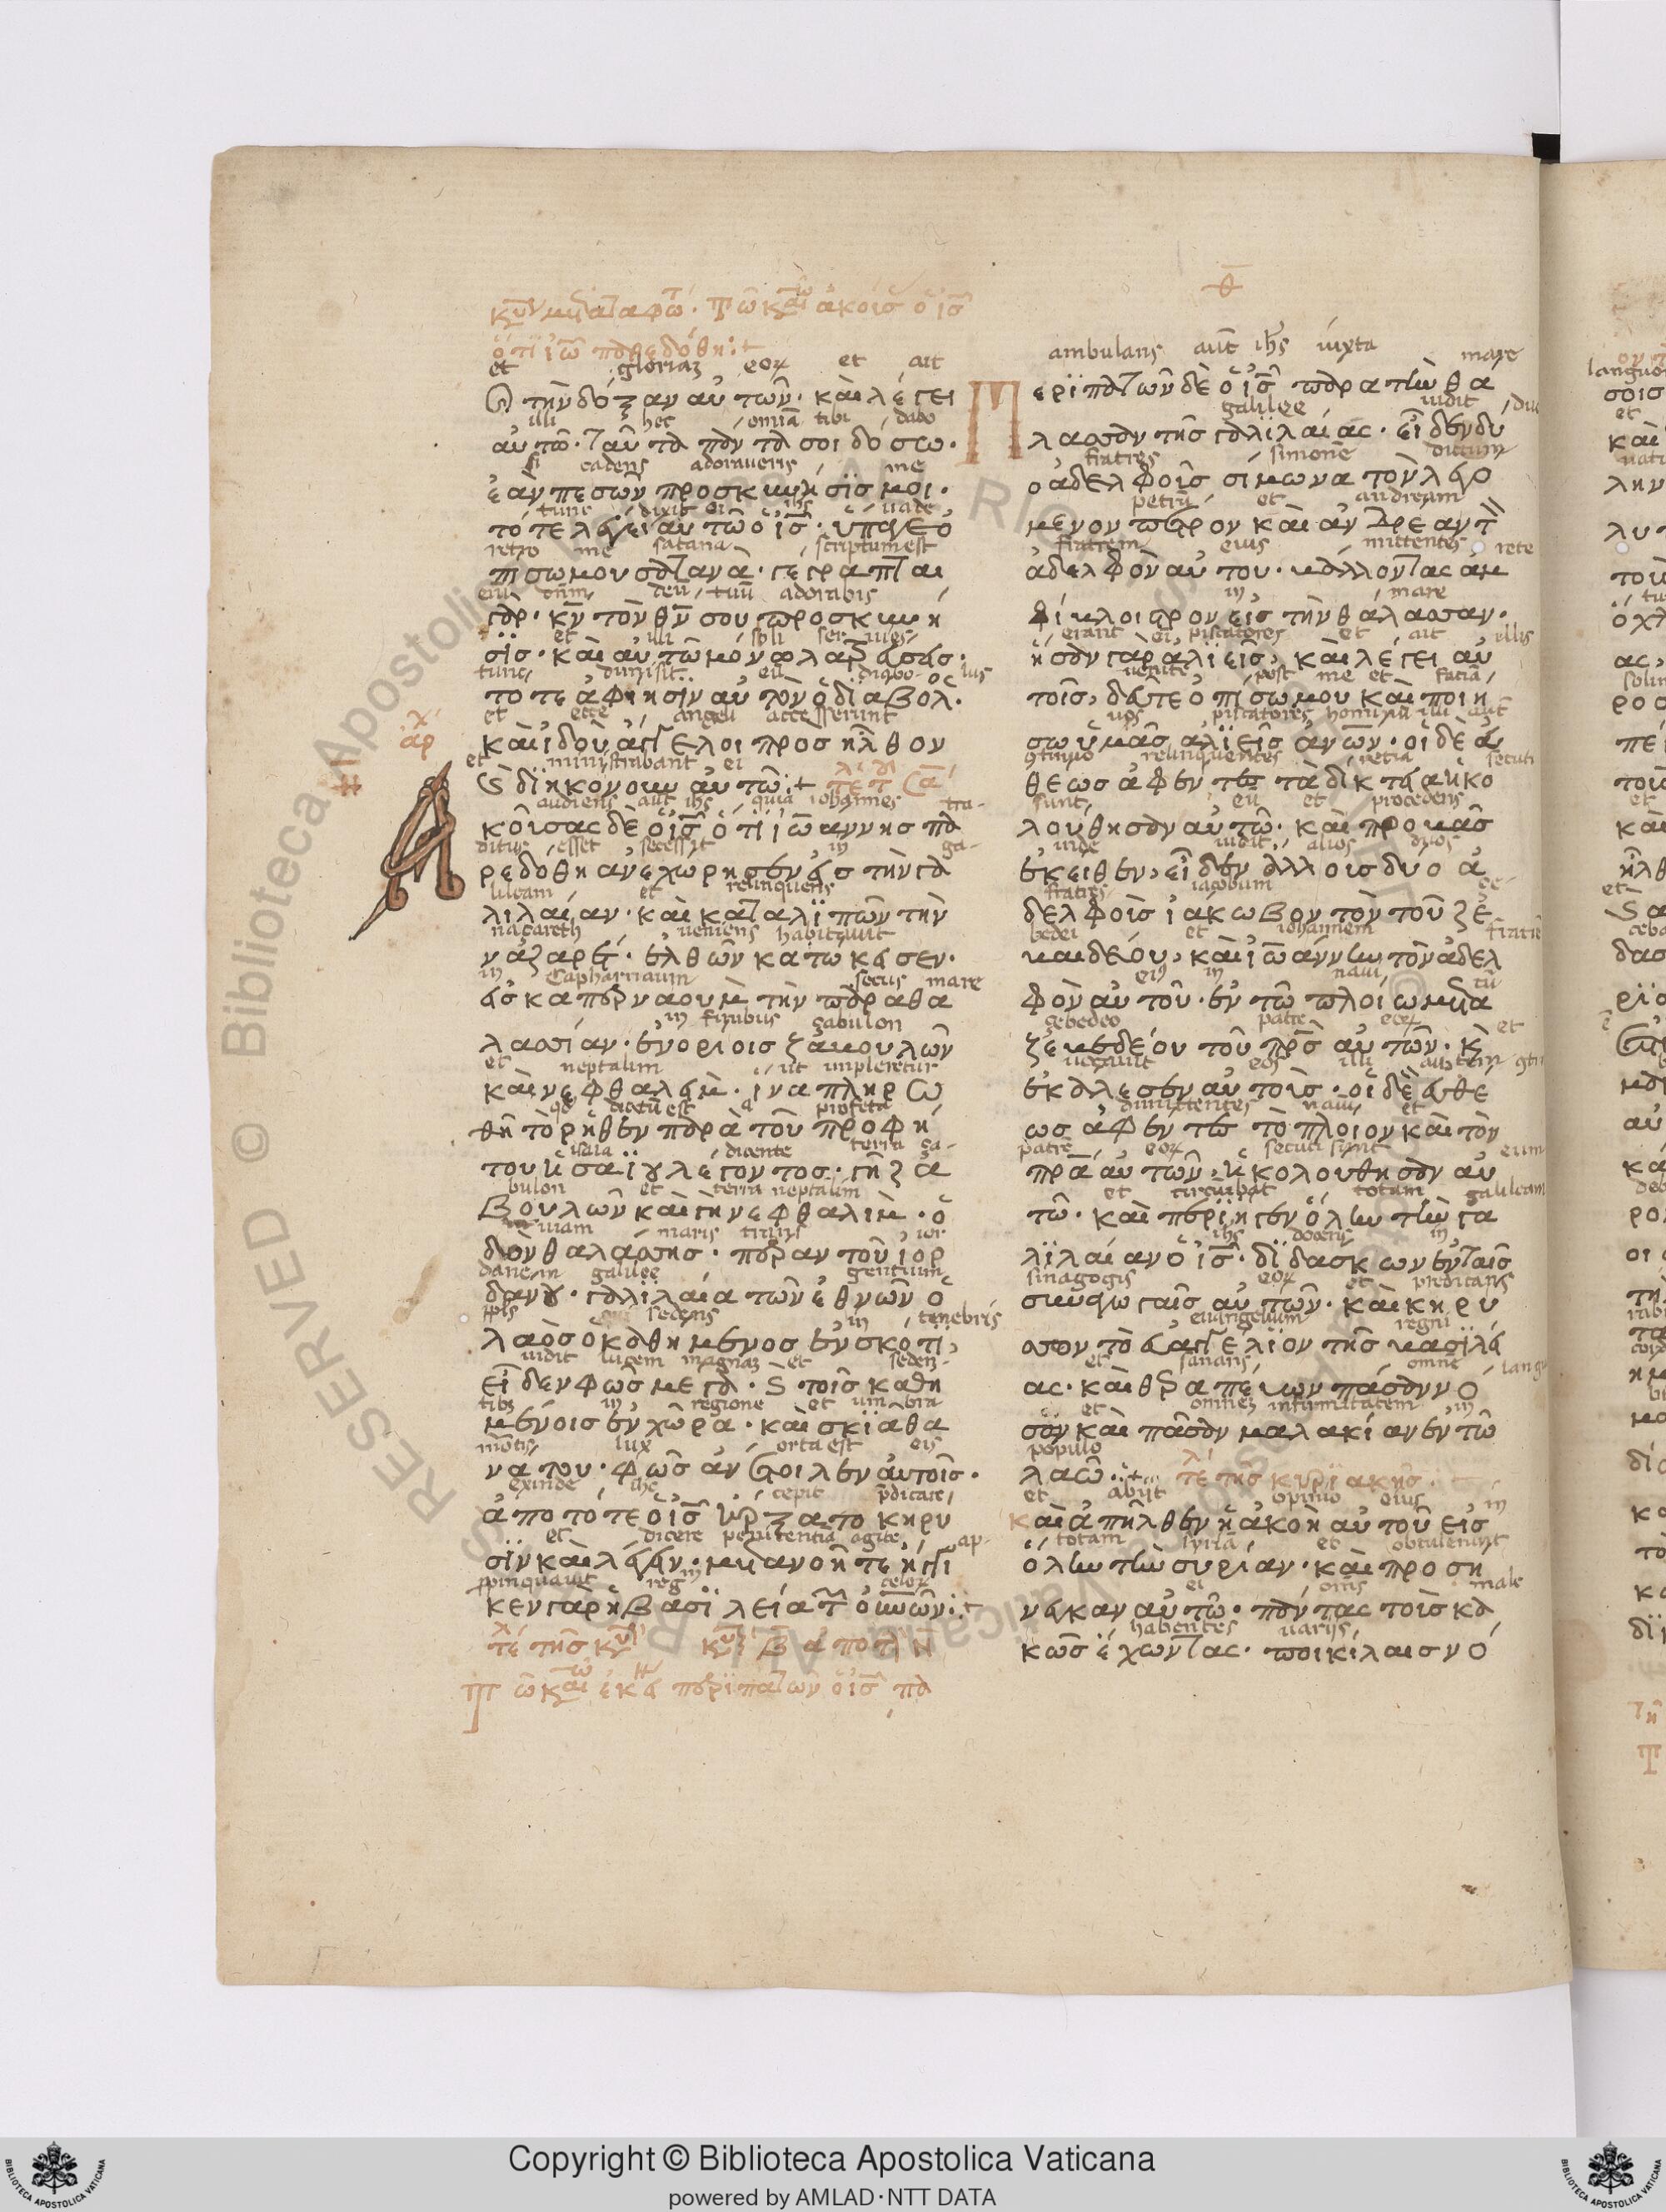 ambulans aut ihs iuxta mare
et gloriaz eoꝝ et ait
τὴν δόξαν αὐτῶν· καὶ λέγει
illi hec omnia tibi dabo
αὐτῶ· ταῦτα πάντα σοι δοσω·
si cadens adoraveris me
ἐὰν πεσῶν προσκυνησϊσ μοι·
tunc dixit ei ihs uade
τότε λέγει αὐτῶ ὁ ἰσ̅· ὕπαγε ὀ
retro me satana scriptum est
πίσω μου σατανᾶ· γεγραπται
eu tuu adorabis
γαρ· κν̅ τὸν θν̅ σου προσκυνή
et illi soli ser uies
σϊσ· καὶ αὐτῶ μόνω λατρεύσεισ·
tunc dimisit eu diabo- lus
τότε ἀφίησϊν αὐτὸν ὁ δϊάβολος·
et ecce angeli accesserunt
καὶ ἰδοὺ ἄγγελοι προσῆλθον
et ministrabant ei
καὶ δϊηκόνουν αὐτῶ:+
audiens aut ihs quia iohannes tra-
ἀκοῦισας δὲ ὁ ἰσ̅ ὅτι ἰωαννησ πα
ditus esset secessit in ga-
ρεδόθη ἀνεχώρησεν εἰσ τὴν γα
lileam et relinquens
λιλαίαν· καὶ καταλϊπὼν τὴν
naçareth ueniens habitauit
νἀζαρέτ· ἐλθὼν κατώκεισεν·
in Capharnaum secus mare
εἰσ καπερναοὺμ τὴν παραθα
in finibus çabulon
λασσίαν· ἐν ὁριοισ ζαβουλῶν
et neptalim ut impleretur
καὶ νεφθαλείμ· ἵνα πληρω
qd dictu est a profeta
θῆ τὸ ρηθὲν παρὰ τοῦ προφή
isaia dicente terra ça-
του ἠσαΐου λέγοντοσ· γῆ ζα
bulon et terra neptalim
βουλῶν καὶ γῆ νεφθαλίμ· ὁ
uiam maris trans ior
δὸν θαλάσσησ· πέραν τοῦ ἰορ
danem galilee gentium
δάνου· γαλιλαία τῶν ἐθνῶν ὁ
sedens in tenebris
λαὸσ ὁ καθήμενοσ ἐν σκότϊ,
uidit lucem magnaz et seden-
εἶδεν φῶσ μέγα· καὶ τοῖσ καθη
tibz in regione et um bra
μένοισ ἐν χῶρα· καὶ σκϊᾶ θα
lux orta est eis
νάτου· φῶσ ἀνέτοιλεν αὐτοῖσ·
exinde cepit pdicare
ἀπὸ τότε ὁ ἰσ̅ ἤρξατο κηρύ
et dicere penitentia agite ap-
σϊν καὶ λέγειν· μετανοῆτε ἤγγι
reg celoꝝ
κεν γὰρ ἡ βασϊλεία τῶν οὐνῶν:+
θ̅
Περϊπατῶν δὲ ὁ ἰσ̅ παρα τὴν θα
galilee uidit duo
λασσαν τῆσ γαλιλαίας· εἶδεν δυ
fratres simone dictum
ο ἀδελφοῖσ σίμωνα τὸν λεγο
petru et andream
μενον πέτρον καὶ ἀνδρεαν τὸν
fratrem eius mittentes rete
ἀδελφὸν αὐτου· βάλλοντας ἀμ
in mare
φίβλοιστρον εἰσ τὴν θάλασσαν·
erant ei piscatores et ait illis
ἦσαν γὰρ ἁλϊεισ, καὶ λέγει αὐ
uenite post me et facia
τοῖσ, δεῦτε ὀπίσω μου καὶ ποιή
uos piscatores hominu illi aut
σω ὑμᾶσ ἁλϊεῖσ ἀνων· οἱ δὲ εὐ
relinquentes retia secuti
θέωσ ἀφέντεσ τὰ δίκτυα ἠκο
sunt eu et procedens
λούθησαν αὐτῶ· καὶ προβὰσ
inde uidit alios duos
ἐκεῖθεν, εἶδεν ἄλλοισ δύο ἀ
fratres iacobum çe-
δελφοὶσ ἰάκωβον τὸν τοῦ ζε
bedei et iohannem fratre
βαιδέου, καὶ ἰωάννην τὸν ἀδελ
eiꝰ in naui cu
φὸν αὐτοῦ· ἐν τῶ πλοίω μετὰ
çebedeo patre eoꝝ et
ζεβεδέου τοῦ προσ αὐτῶν· καὶ
uocauit eos illi autem
ἐκάλεσεν αὐτοὶσ· οἱ δὲ εὐθέ
dimittentes naui et
ωσ ἀφέντεσ τὸ πλοῖον καὶ τὸν
patre eoꝝ secuti sunt eum
πρα̅ αὐτῶν, ἠκολούθησαν αὐ
et circuibat totam galileam
τῶ· καὶ περϊῆγεν ὅλην τὴν γα
ihs docens in
λϊλαίαν ὁ ἰσ̅· δϊδάσκων ἐν ταισ
sinagogis eoꝝ et predicans
συναγωγαῖσ αὐτῶν· καὶ κηρύ
euangelium regni
σσον τὸ εὐαγγέλϊον τῆσ βασϊλεί
et sanans omne langu
ας· καὶ θεραπεύων πάσαν νό
et omnez infirmitatem in
σον καὶ πᾶσαν μαλακίαν ἐν τῶ
populo
λαῶ:+ τε τησ κυρϊακησ
et abijt opinio eius in
καὶ ἀπῆλθεν ἡ ἀκοὴ αὐτοῦ εἰσ
totam syria et obtulerunt
ὅλην τὴν συρίαν· καὶ προσή
ei oms male
νεικαν αὐτῶ· πάντας τοὶσ κα
habentes uarijs
κῶσ ἔχωντας· ποικίλαισ νό
Copyright © Biblioteca Apostolica Vaticana
powered by AMLAD·NTT DATA